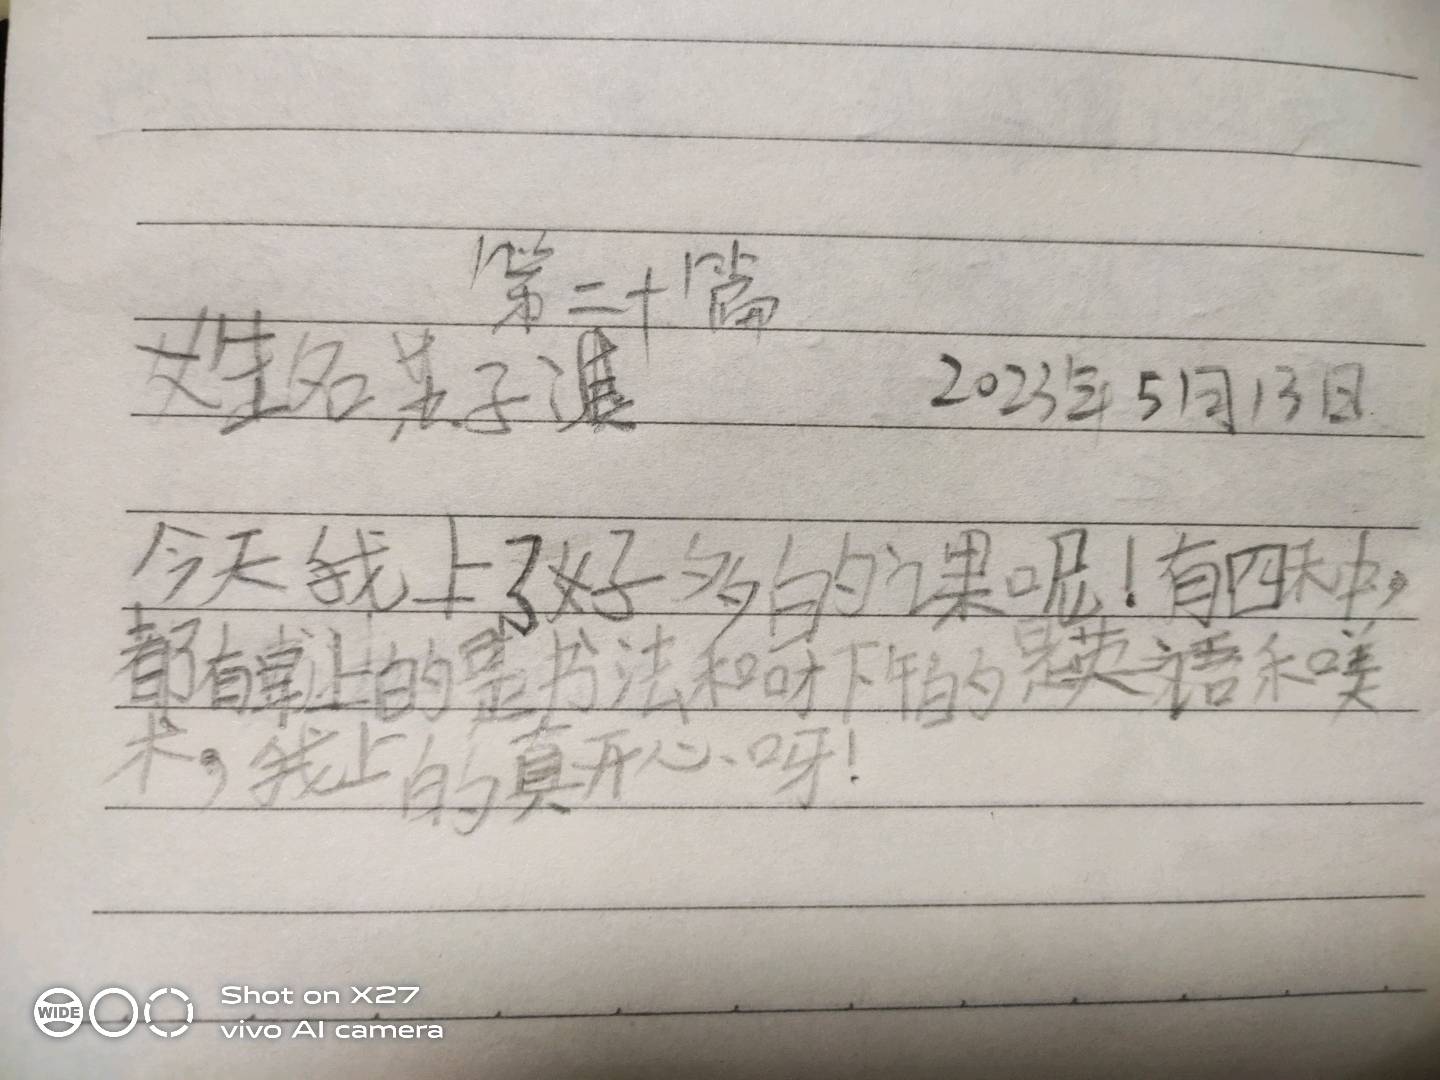 第二十篇
姓名苏子淇 2023年5月13日
今天我上了好多的课呢！有四种，
都有早上的是书法和 下午的是英语和美
术，我上的真开心呀！
WIDE
Shot on X27
vivo AI camera